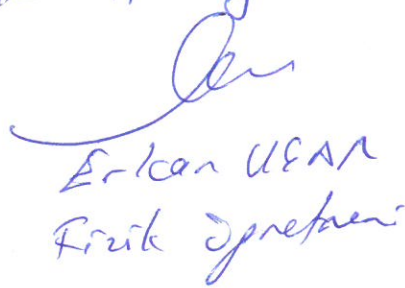 Erkan UÇAR
Fizik Öğretmeni